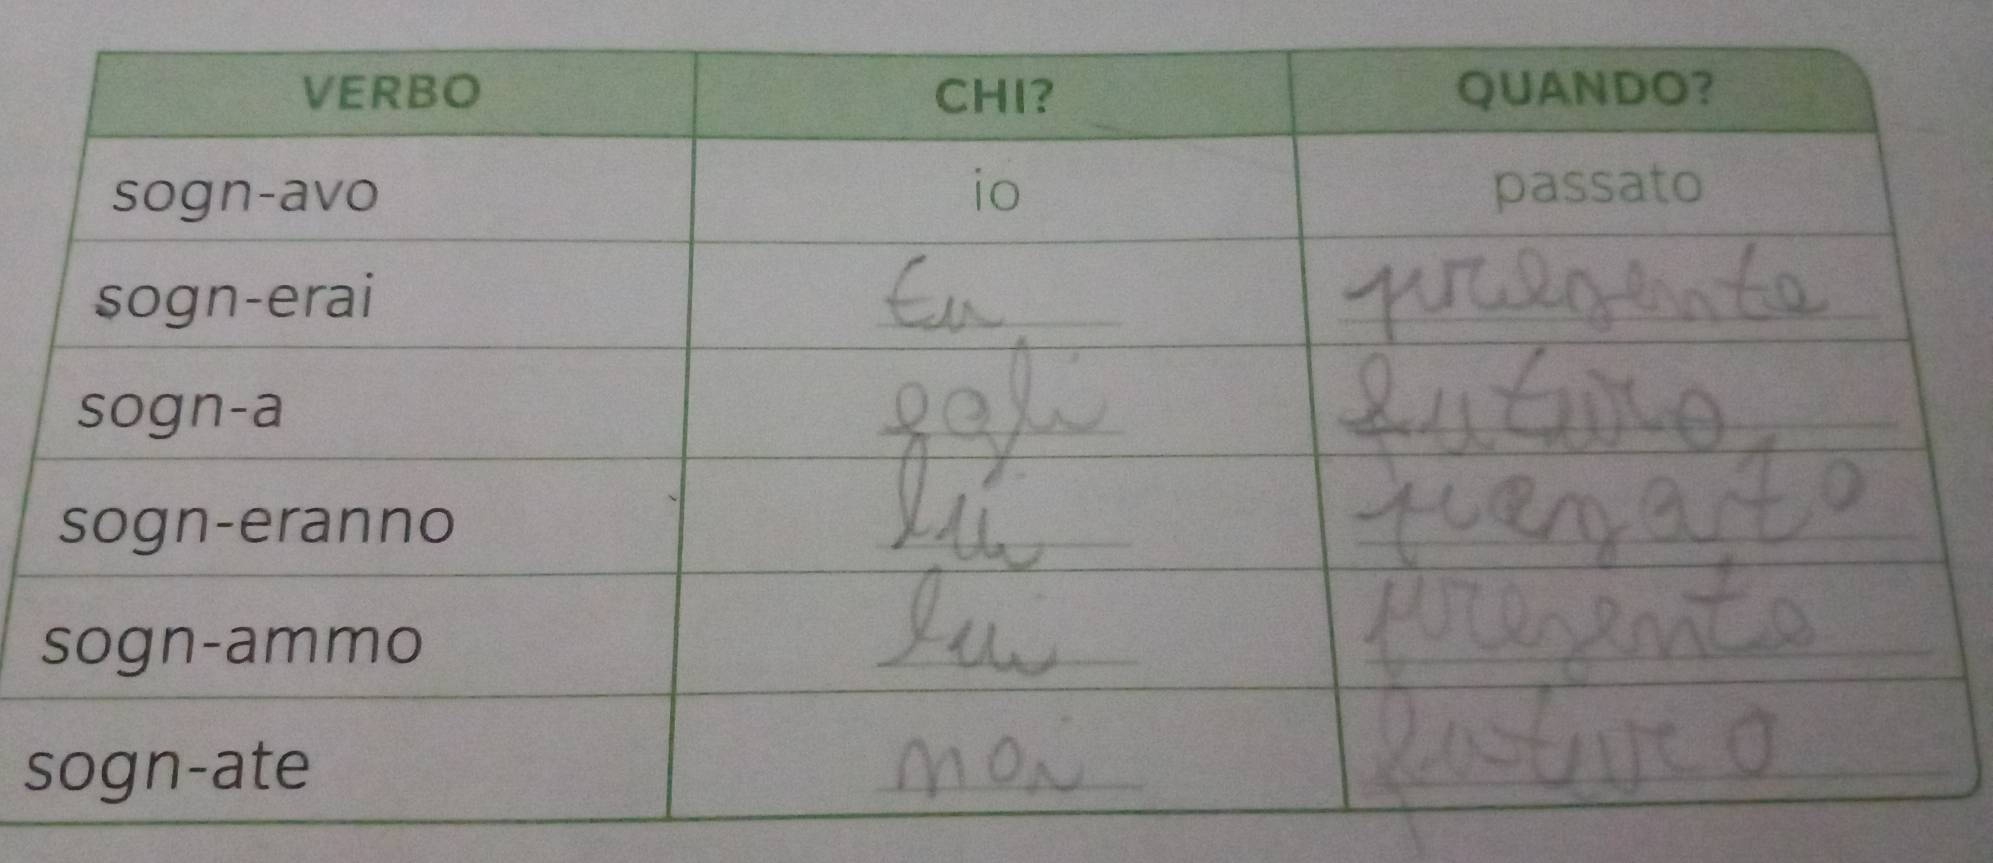 VERBO CHI? QUANDO?
sogn-avo io passato
sogn-erai tu presente
sogn-a egli futuro
sogn-eranno lui
sogn-ammo lui presente
sogn-ate noi futuro